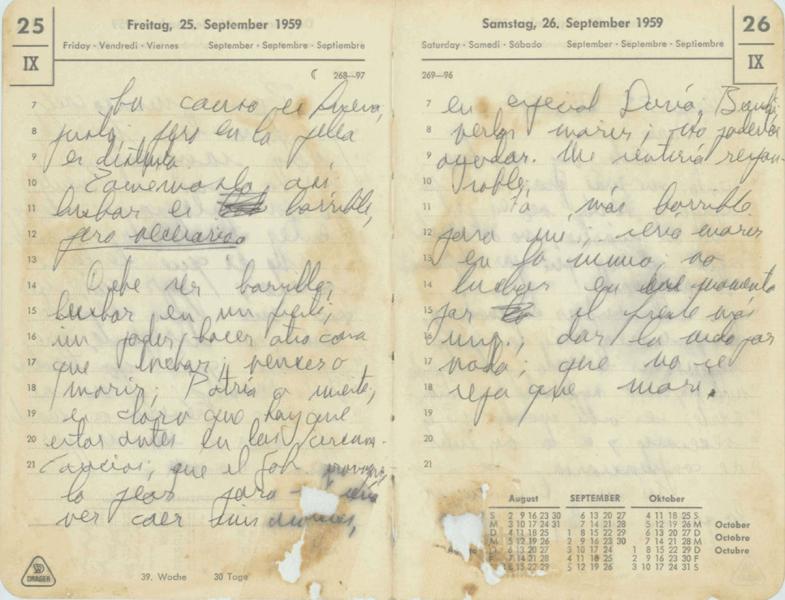 25
IX
Freitag, 25. September 1959
Friday · Vendredi · Viernes September · Septembre · Septiembre
268—97
7 La causa es buena,
8 justa, pero en la pelea
9 es distinta.
10 así
11 luchar es horrible,
12 pero necesario
13
14 Debe ser horrible,
15 luchar en un
16 un poder, hacer otra cosa
17 que luchar; vencer o
18 morir; Patria o muerte,
19 es claro que hay que
20 estar antes en las circuns-
21 tancias, que el Gob.
lo peor para
ver caer sus
DRÄGER
39. Woche 30 Tage
26
IX
Samstag, 26. September 1959
Saturday · Samedi · Sábado September · Septembre · Septiembre
269—96
7 en especial
8 verlos morir; no poderlos
9 ayudar. Me sentiría respon-
10 sable.
11 más horrible
12 para mí; sería morir
13 en la misma, no
14 luchar en ese momento
15 por el frente más
16 dar la vida por
17 nada; que no se
18 sepa que morí.
19
20
21
August SEPTEMBER Oktober
S 2 9 16 23 30 6 13 20 27 4 11 18 25 S
M 3 10 17 24 31 7 14 21 28 5 12 19 26 M October
D 4 11 18 25 1 8 15 22 29 6 13 20 27 D
M 5 12 19 26 2 9 16 23 30 7 14 21 28 M Octobre
D 6 13 20 27 3 10 17 24 1 8 15 22 29 D Octubre
F 7 14 21 28 4 11 18 25 2 9 16 23 30 F
S 8 15 22 29 5 12 19 26 3 10 17 24 31 S